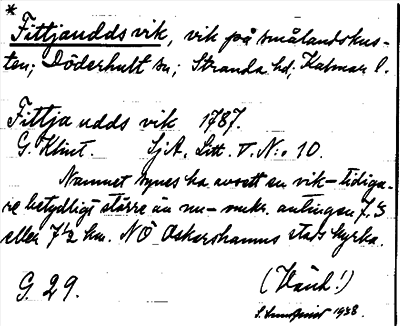 *
Fittjaudds vik, vik på smålandskus-
ten; Döderhult sn; Stranda hd; Kalmar l.
Fittja udds vik 1787.
G. Klint. SjA. Litt. V. No. 10.
Namnet synes ha avsett en vik - tidiga-
re betydligt större än nu - omkr. antingen 7,5
eller 7½ km. NÖ Oskarshamns stads kyrka.
G. 29. (Vänd!)
S. 1938.